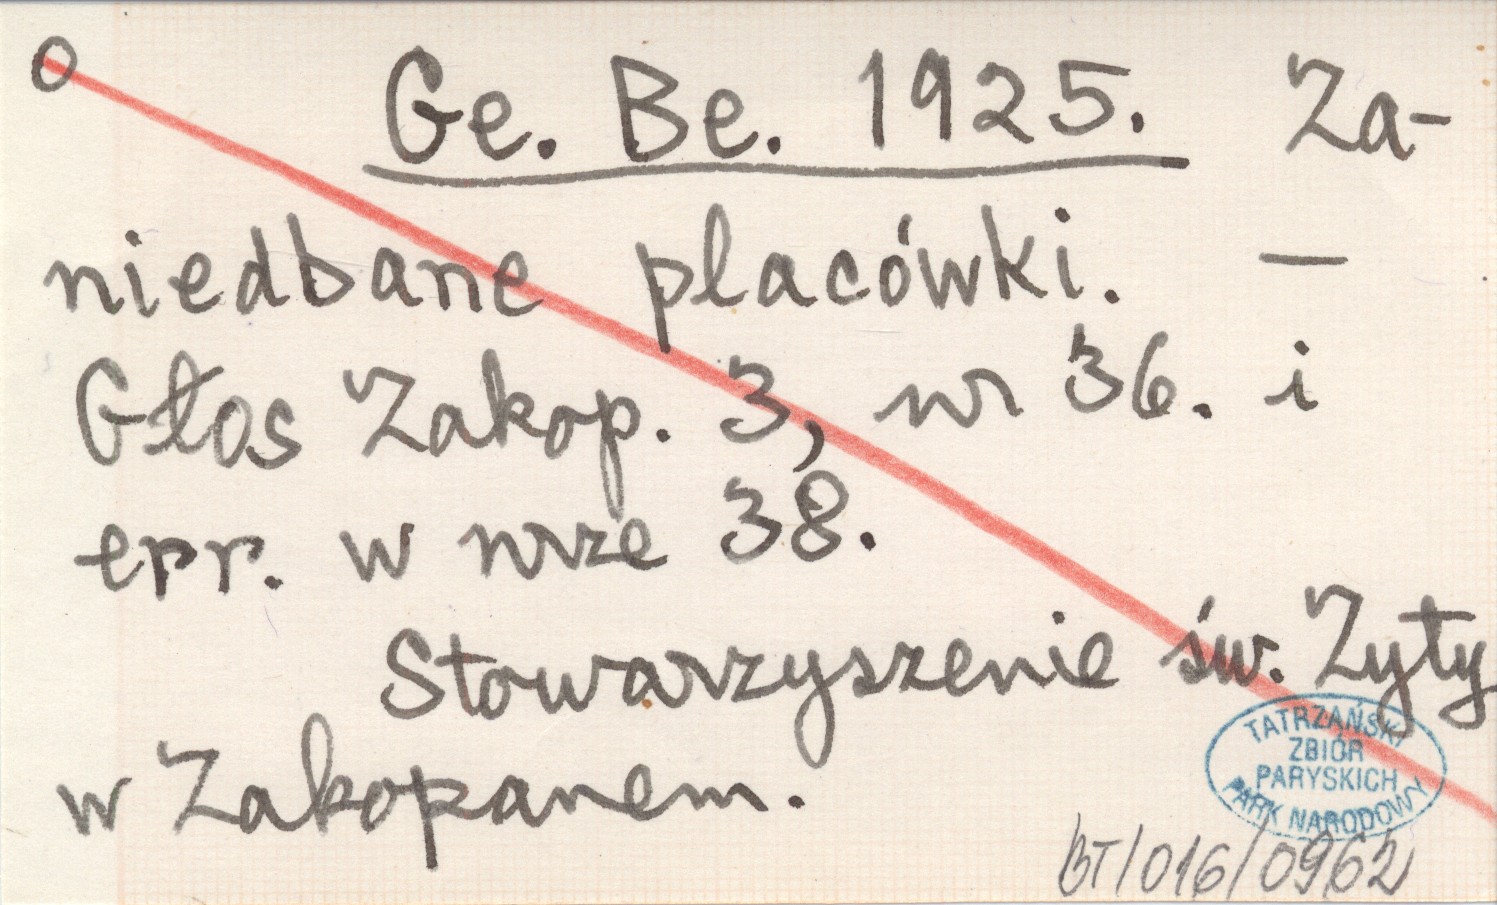 O Ge. Be. 1925. Za-
niedbane placówki. —
Głos Zakop. 3, nr 36. i
epr. w nrze 38.
Stowarzyszenie św. Zyty
w Zakopanem.
TATRZAŃSKI
ZBIÓR
PARYSKICH
PARK NARODOWY
BT/016/0962